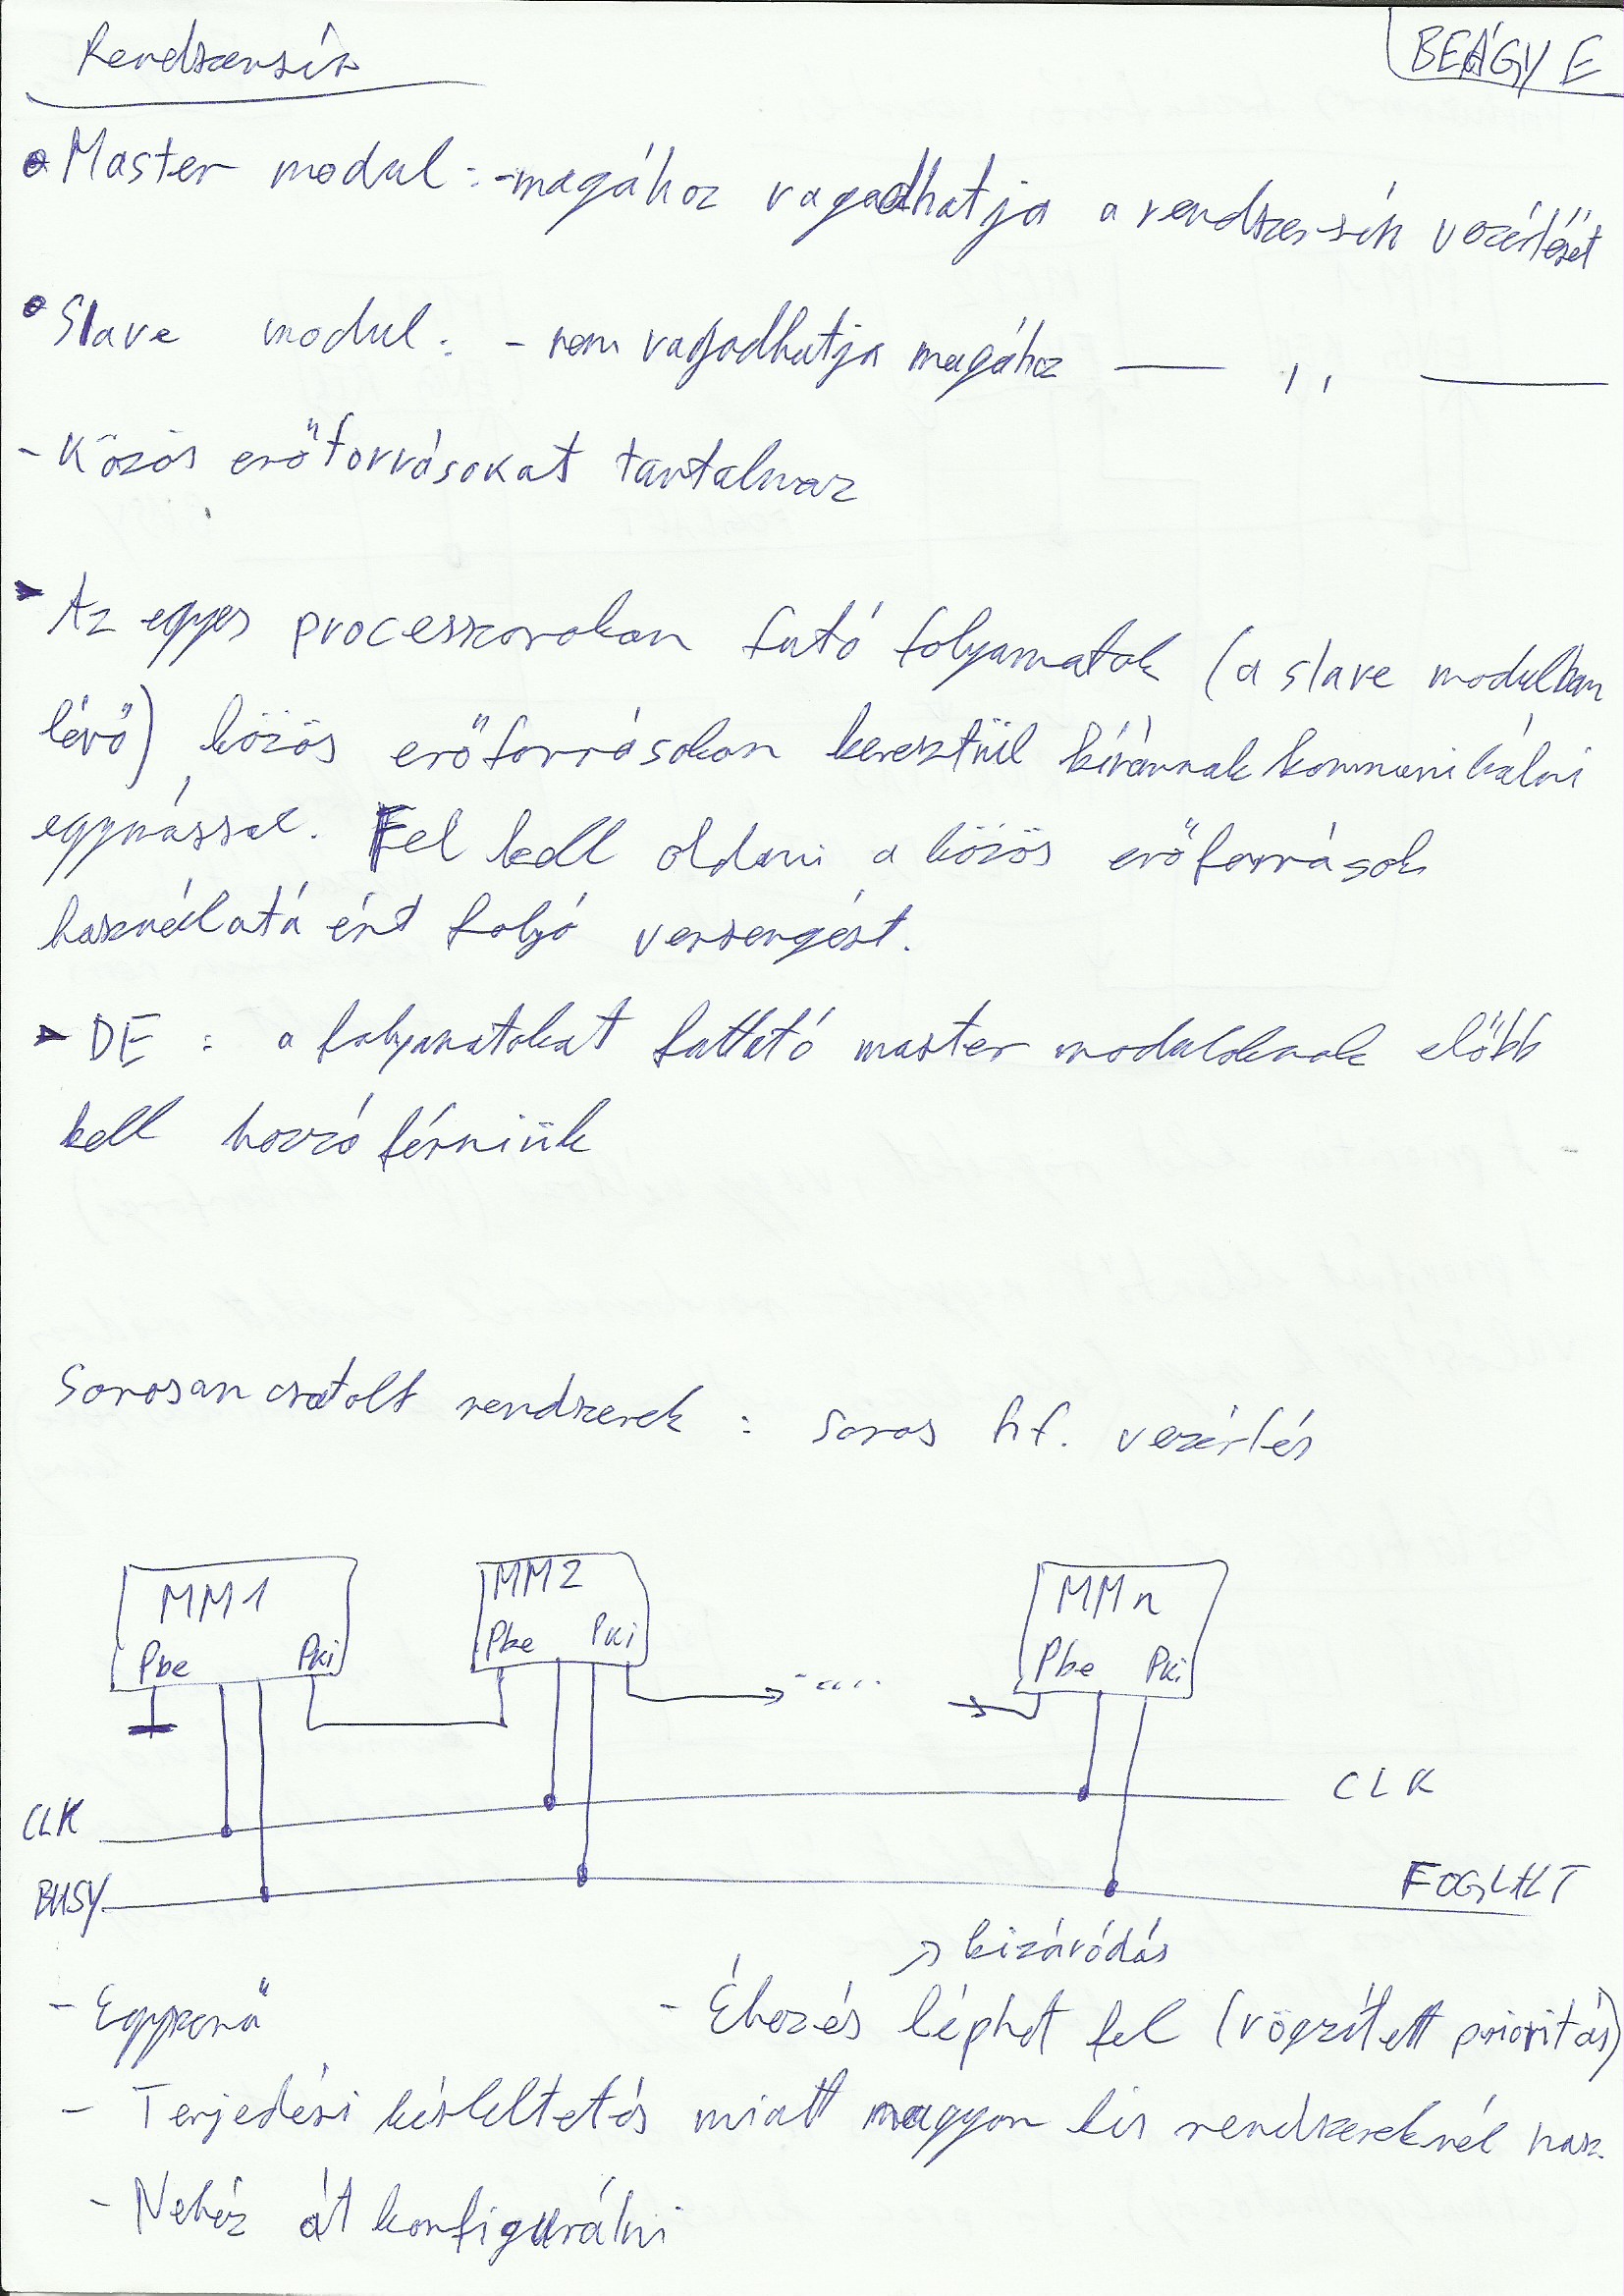 Rendszersín
BEÁGY E
Master modul: - magához ragadhatja a rendszersín vezérlését
Slave modul: - nem ragadhatja magához — ,, —
- Közös erőforrásokat tartalmaz
Az egyes processzorokon futó folyamatok (a slave modulban
lévő) közös erőforrásokon keresztül kívánnak kommunikálni
egymással. Fel kell oldani a közös erőforrások
használatáért folyó versengést.
DE: a folyamatokat futtató master moduloknak előbb
kell hozzáférniük
Sorosan csatolt rendszerek: soros hf. vezérlés
MM1 MM2 MMn
Pbe Pki Pbe Pki .... Pbe Pki
CLK CLK
BUSY FOGLALT
kizáródás
- Egyszerű - Éhezés léphet fel (rögzített prioritás)
- Terjedési késleltetés miatt nagyon kis rendszereknél hasz.
- Nehéz átkonfigurálni